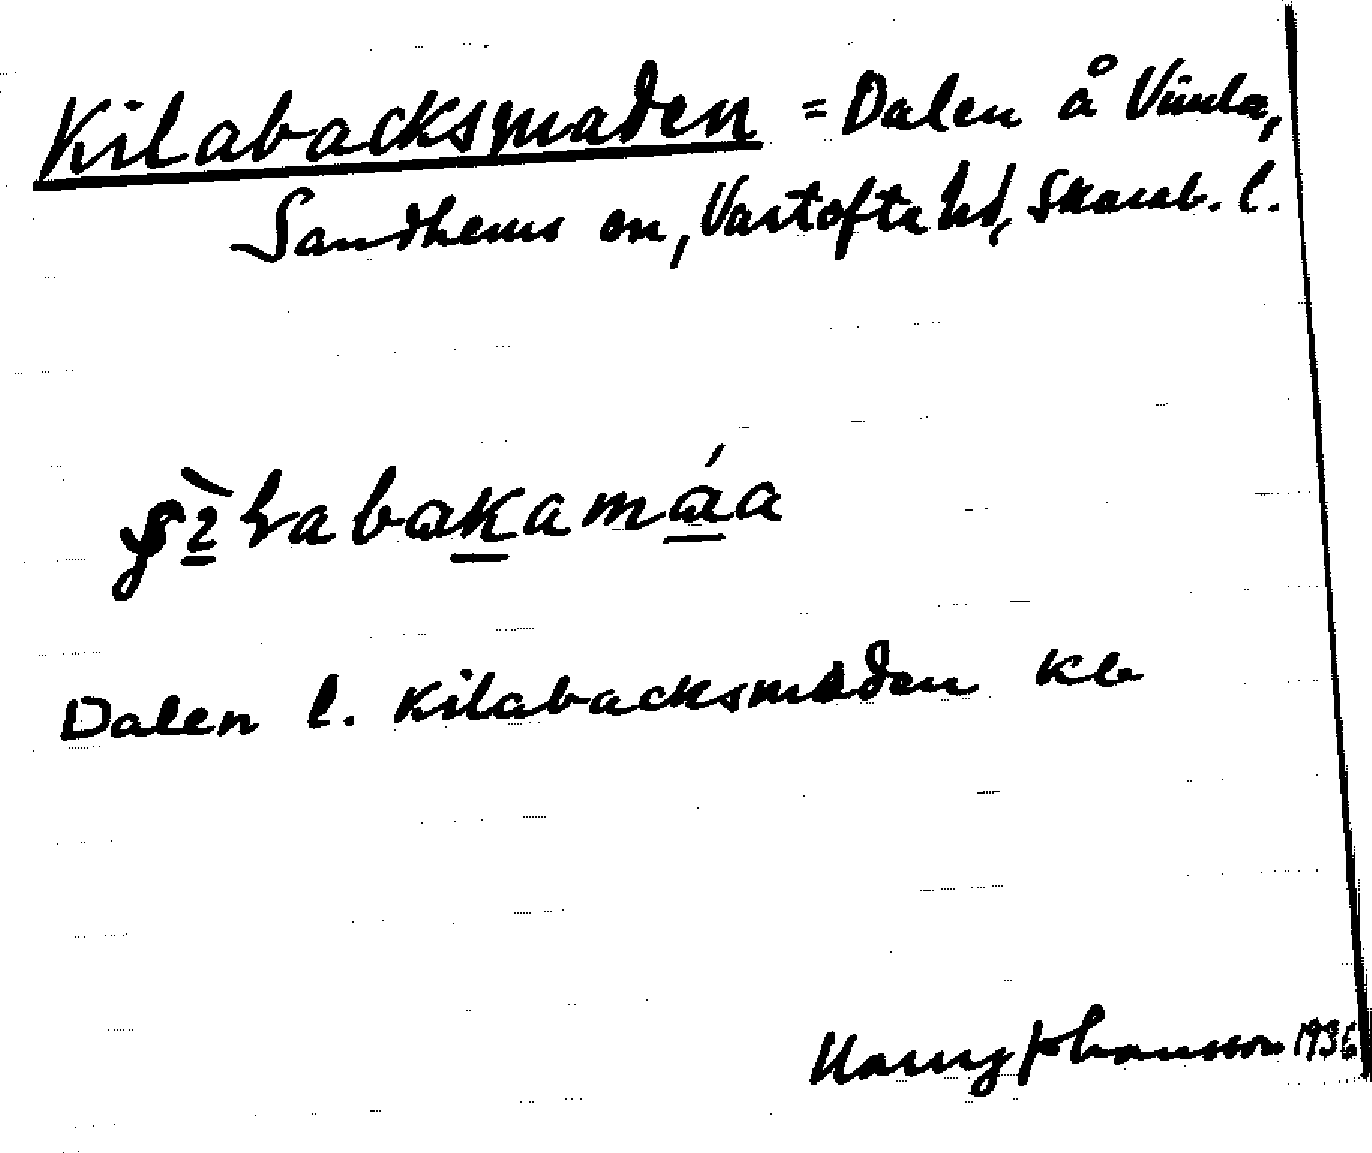 Kilabacksmaden = Dalen å Vimla,
Sandhems sn, Vartofta hd, Skarab. l.
Dalen l. Kilabacksmaden kb
Harry Johansson 1936